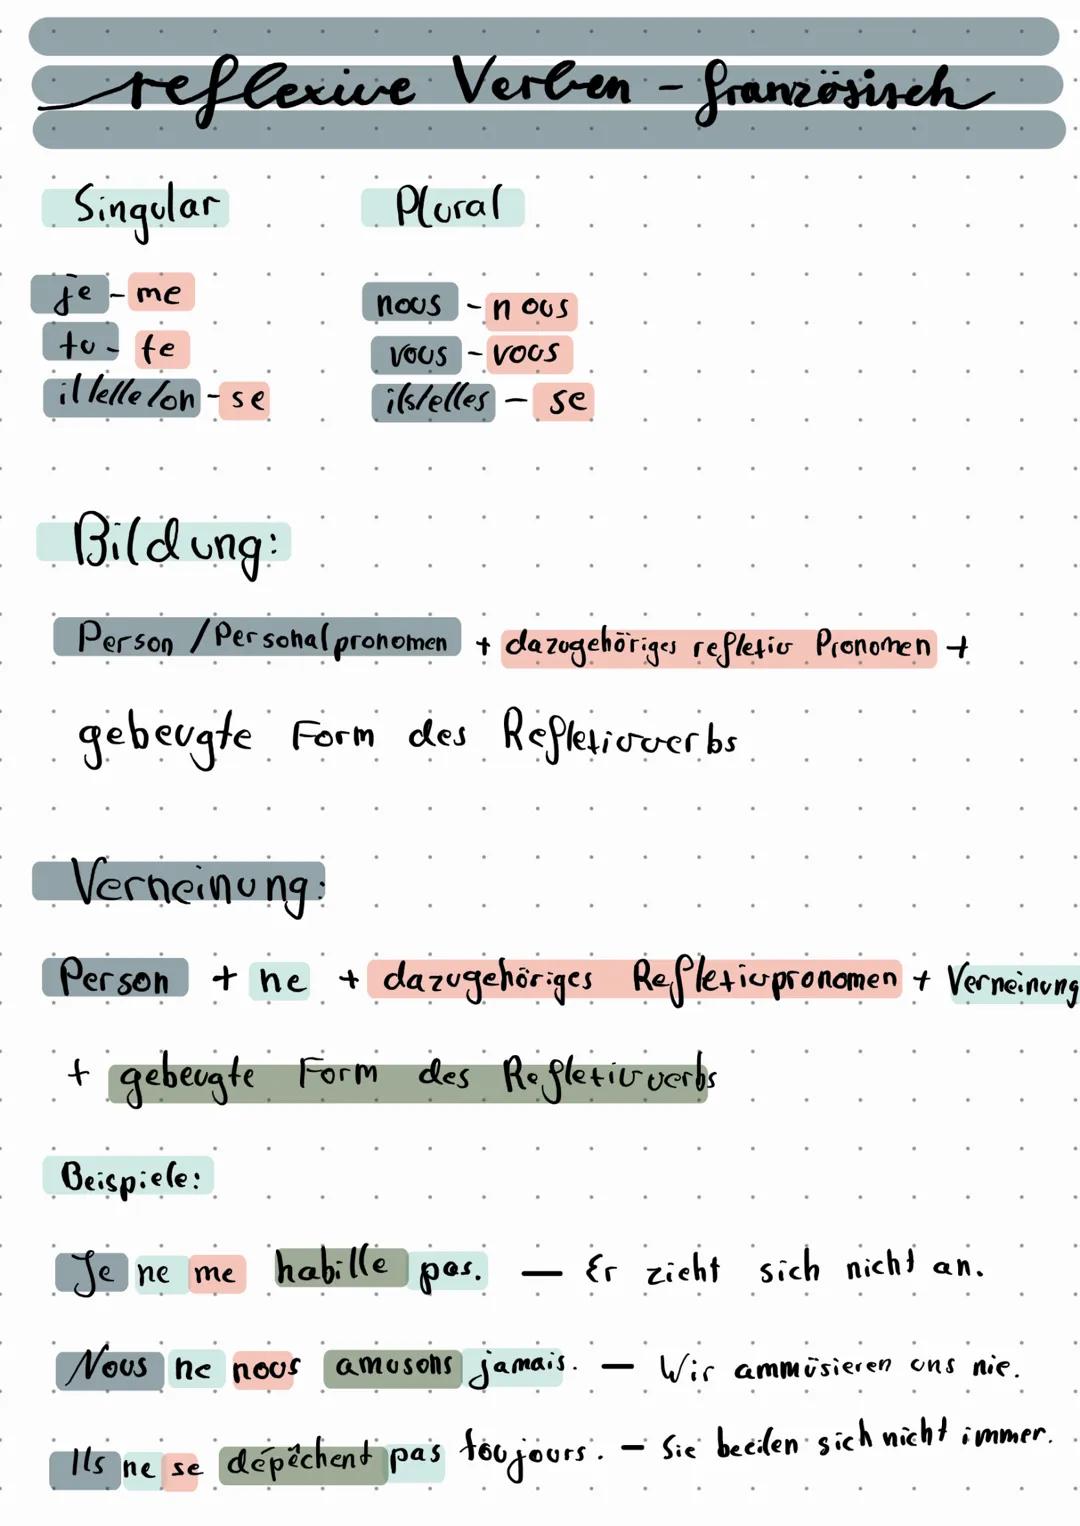 reflexive Verben - französisch
Singular Plural
je - me nous - nous
tu - te vous - vous
il/elle/on - se ils/elles - se
Bildung:
Person / Personalpronomen + dazugehöriges reflexiv Pronomen +
gebeugte Form des Reflexivverbs
Verneinung:
Person + ne + dazugehöriges Reflexivpronomen + Verneinung
+ gebeugte Form des Reflexivverbs
Beispiele:
Je ne me habille pas. — Er zieht sich nicht an.
Nous ne nous amusons jamais. — Wir ammüsieren uns nie.
Ils ne se dépêchent pas toujours. — Sie beeilen sich nicht immer.